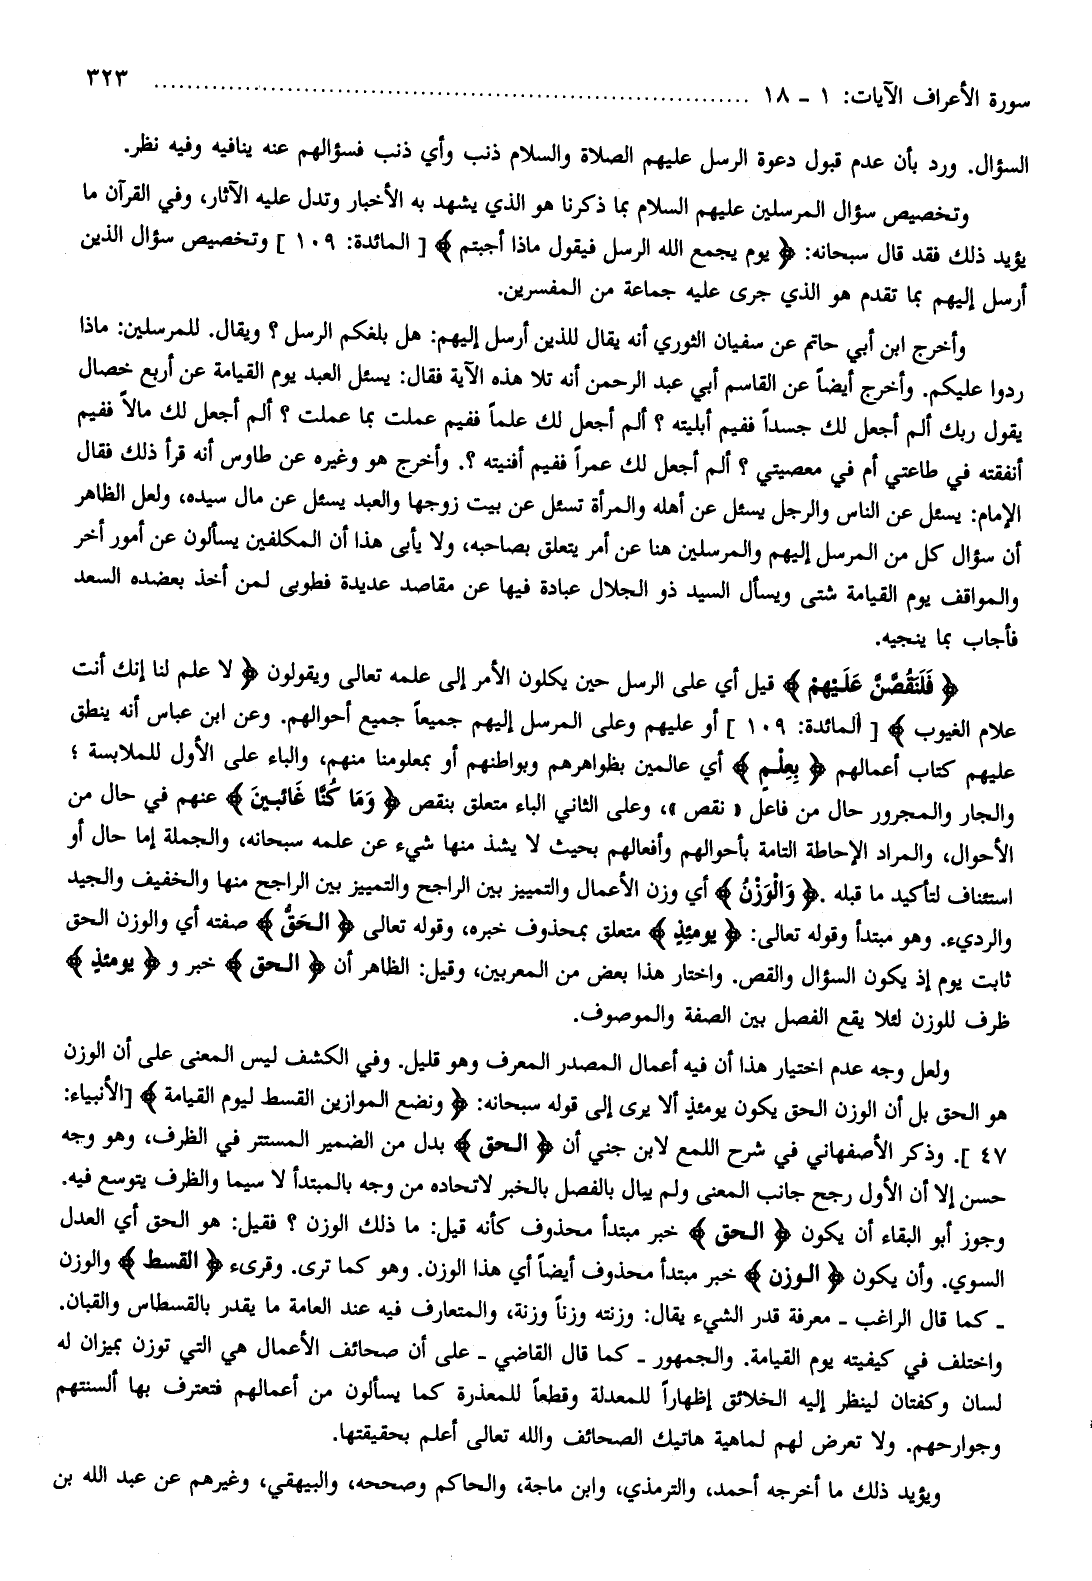 سورة الأعراف الآيات: ١ ـ ١٨ ................................................................ ٣٢٣
السؤال. ورد بأن عدم قبول دعوة الرسل عليهم الصلاة والسلام ذنب وأي ذنب فسؤالهم عنه ينافيه وفيه نظر.
وتخصيص سؤال المرسلين عليهم السلام بما ذكرنا هو الذي يشهد به الأخبار وتدل عليه الآثار، وفي القرآن ما
يؤيد ذلك فقد قال سبحانه: ﴿ يوم يجمع الله الرسل فيقول ماذا أجبتم ﴾ [ المائدة: ١٠٩ ] وتخصيص سؤال الذين
أرسل إليهم بما تقدم هو الذي جرى عليه جماعة من المفسرين.
وأخرج ابن أبي حاتم عن سفيان الثوري أنه يقال للذين أرسل إليهم: هل بلغكم الرسل ؟ ويقال. للمرسلين: ماذا
ردوا عليكم. وأخرج أيضاً عن القاسم أبي عبد الرحمن أنه تلا هذه الآية فقال: يسئل العبد يوم القيامة عن أربع خصال
يقول ربك ألم أجعل لك جسداً ففيم أبليته ؟ ألم أجعل لك علماً ففيم عملت بما عملت ؟ ألم أجعل لك مالاً ففيم
أنفقته في طاعتي أم في معصيتي ؟ ألم أجعل لك عمراً ففيم أفنيته ؟. وأخرج هو وغيره عن طاوس أنه قرأ ذلك فقال
الإمام: يسئل عن الناس والرجل يسئل عن أهله والمرأة تسئل عن بيت زوجها والعبد يسئل عن مال سيده، ولعل الظاهر
أن سؤال كل من المرسل إليهم والمرسلين هنا عن أمر يتعلق بصاحبه، ولا يأبى هذا أن المكلفين يسألون عن أمور أخر
والمواقف يوم القيامة شتى ويسأل السيد ذو الجلال عبادة فيها عن مقاصد عديدة فطوبى لمن أخذ بعضده السعد
فأجاب بما ينجيه.
﴿ فَلَنَقُصَّنَّ عَلَيْهِمْ ﴾ قيل أي على الرسل حين يكلون الأمر إلى علمه تعالى ويقولون ﴿ لا علم لنا إنك أنت
علام الغيوب ﴾ [ المائدة: ١٠٩ ] أو عليهم وعلى المرسل إليهم جميعاً جميع أحوالهم. وعن ابن عباس أنه ينطق
عليهم كتاب أعمالهم ﴿ بِعِلْمٍ ﴾ أي عالمين بظواهرهم وبواطنهم أو بمعلومنا منهم، والباء على الأول للملابسة ؛
والجار والمجرور حال من فاعل « نقص »، وعلى الثاني الباء متعلق بنقص ﴿ وَمَا كُنَّا غَائبينَ ﴾ عنهم في حال من
الأحوال، والمراد الإحاطة التامة بأحوالهم وأفعالهم بحيث لا يشذ منها شيء عن علمه سبحانه، والجملة إما حال أو
استئناف لتأكيد ما قبله .﴿ وَالْوَزْنُ ﴾ أي وزن الأعمال والتمييز بين الراجح والتمييز بين الراجح منها والخفيف والجيد
والرديء. وهو مبتدأ وقوله تعالى: ﴿ يومئِذٍ ﴾ متعلق بمحذوف خبره، وقوله تعالى ﴿ الحَقُّ ﴾ صفته أي والوزن الحق
ثابت يوم إذ يكون السؤال والقص. واختار هذا بعض من المعربين، وقيل: الظاهر أن ﴿ الحق ﴾ خبر و ﴿ يومئذٍ ﴾
ظرف للوزن لئلا يقع الفصل بين الصفة والموصوف.
ولعل وجه عدم اختيار هذا أن فيه أعمال المصدر المعرف وهو قليل. وفي الكشف ليس المعنى على أن الوزن
هو الحق بل أن الوزن الحق يكون يومئذٍ ألا يرى إلى قوله سبحانه: ﴿ ونضع الموازين القسط ليوم القيامة ﴾ [الأنبياء:
٤٧ ]. وذكر الأصفهاني في شرح اللمع لابن جني أن ﴿ الحق ﴾ بدل من الضمير المستتر في الظرف، وهو وجه
حسن إلا أن الأول رجح جانب المعنى ولم يبال بالفصل بالخبر لاتحاده من وجه بالمبتدأ لا سيما والظرف يتوسع فيه.
وجوز أبو البقاء أن يكون ﴿ الحق ﴾ خبر مبتدأ محذوف كأنه قيل: ما ذلك الوزن ؟ فقيل: هو الحق أي العدل
السوي. وأن يكون ﴿ الوزن ﴾ خبر مبتدأ محذوف أيضاً أي هذا الوزن. وهو كما ترى. وقرىء ﴿ القسط ﴾ والوزن
ـ كما قال الراغب ـ معرفة قدر الشيء يقال: وزنته وزناً وزنة، والمتعارف فيه عند العامة ما يقدر بالقسطاس والقبان.
واختلف في كيفيته يوم القيامة. والجمهور ـ كما قال القاضي ـ على أن صحائف الأعمال هي التي توزن بميزان له
لسان وكفتان لينظر إليه الخلائق إظهاراً للمعدلة وقطعاً للمعذرة كما يسألون من أعمالهم فتعترف بها ألسنتهم
وجوارحهم. ولا تعرض لهم لماهية هاتيك الصحائف والله تعالى أعلم بحقيقتها.
ويؤيد ذلك ما أخرجه أحمد، والترمذي، وابن ماجة، والحاكم وصححه، والبيهقي، وغيرهم عن عبد الله بن